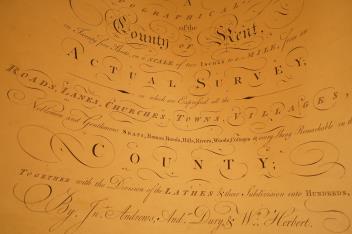 A
TOPOGRAPHICAL
of the
County OF Kent,
in Twenty five Sheets, on a SCALE of two INCHES to a MILE, from an
ACTUAL SURVEY,
in which are Expressed all the
ROADS, LANES, CHURCHES, TOWNS, VILLAGES,
Noblemen and Gentlemens SEATS, Roman Roads, Hills, Rivers, Woods, Cottages & every thing Remarkable in the
COUNTY;
TOGETHER with the Division of the LATHES & their Subdivision into HUNDREDS,
By, Jnº. Andrews, Andw. Dury, & Wm. Herbert.